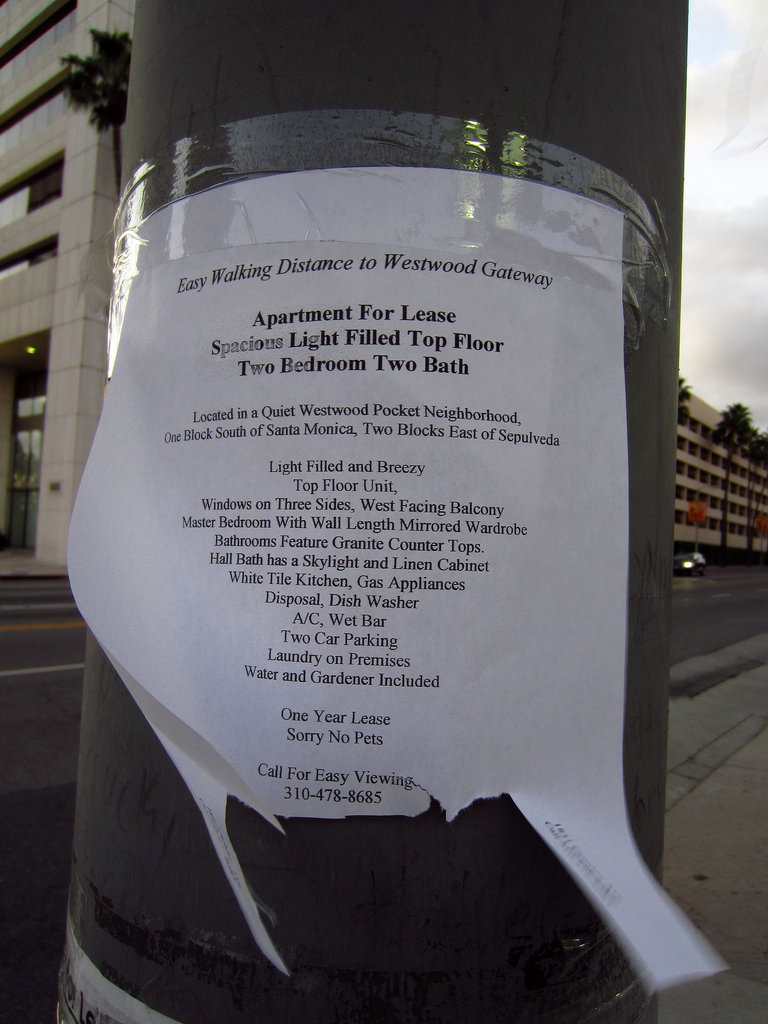 Easy Walking Distance to Westwood Gateway
Apartment For Lease
Spacious Light Filled Top Floor
Two Bedroom Two Bath
Located in a Quiet Westwood Pocket Neighborhood,
One Block South of Santa Monica, Two Blocks East of Sepulveda
Light Filled and Breezy
Top Floor Unit,
Windows on Three Sides, West Facing Balcony
Master Bedroom With Wall Length Mirrored Wardrobe
Bathrooms Feature Granite Counter Tops.
Hall Bath has a Skylight and Linen Cabinet
White Tile Kitchen, Gas Appliances
Disposal, Dish Washer
A/C, Wet Bar
Two Car Parking
Laundry on Premises
Water and Gardener Included
One Year Lease
Sorry No Pets
Call For Easy Viewing
310-478-8685